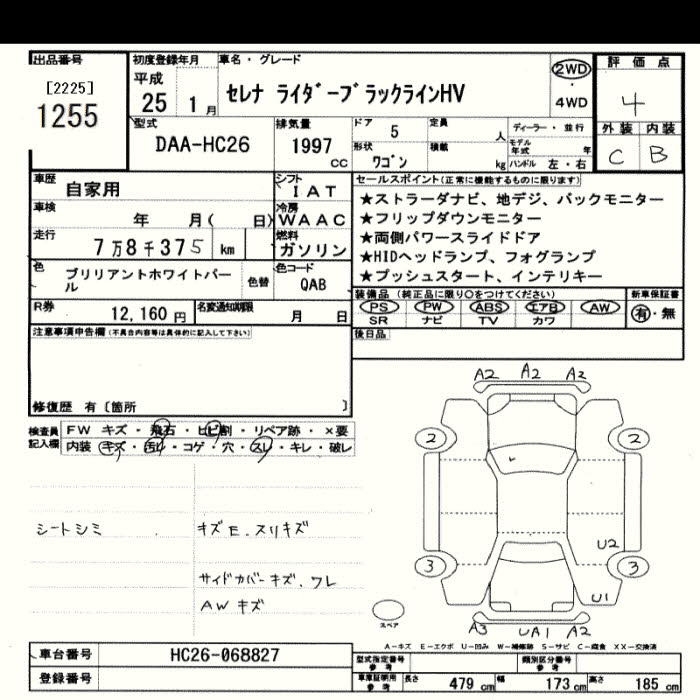 出品番号
[2225]
1255
初度登録年月
平成
25 1 月
車名・グレード
セレナ ライダーブラックラインHV
2WD
・
4WD
評価点
4
外装 内装
C B
型式
DAA-HC26
排気量
1997
cc
ドア
5
定員
人
形状
ワゴン
積載
kg
ディーラー・並行
モデル年式
年
ハンドル 左・右
車歴
自家用
シフト
IAT
車検
年 月( 日)
冷房
WAAC
走行
7万8千375 km
燃料
ガソリン
色
ブリリアントホワイトパール
色替
色コード
QAB
R券
12,160 円
名変通知期限
月 日
セールスポイント(正常に機能するものに限ります)
★ストラーダナビ、地デジ、バックモニター
★フリップダウンモニター
★両側パワースライドドア
★HIDヘッドランプ、フォグランプ
★プッシュスタート、インテリキー
装備品 (純正品に限り○をつけてください)
PS PW ABS エアB AW
SR ナビ TV カワ
新車保証書
有・無
後日品
注意事項申告欄(不具合内容等は具体的に記入して下さい)
修復歴 有〔箇所 〕
検査員記入欄
FW キズ・飛石・ヒビ割・リペア跡・×要
内装 キズ・汚れ・コゲ・穴・スレ・キレ・破レ
シートシミ
キズE.スリキズ
サイドカバーキズ、ワレ
AWキズ
A2 A2 A2
2 2
U2
3 3
U1
A3 UA1 A2
スペア
A-キズ E-エクボ U-凹み W-補修跡 S-サビ C-腐食 XX-交換済
車台番号
HC26-068827
登録番号
型式指定番号
参考
類別区分番号
参考
車庫証明用
参考
長さ 479 cm 幅 173 cm 高さ 185 cm